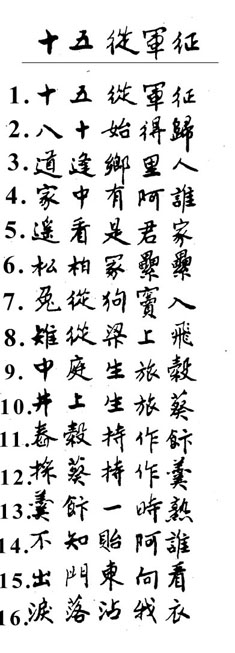 十五從軍征
1.十五從軍征
2.八十始得歸
3.道逢鄉里人
4.家中有阿誰
5.遥看是君家
6.松柏冢纍纍
7.兔從狗竇入
8.雉從梁上飛
9.中庭生旅穀
10.井上生旅葵
11.舂穀持作飰
12.採葵持作羹
13.羹飰一時熟
14.不知貽阿誰
15.出門東向看
16.淚落沾我衣